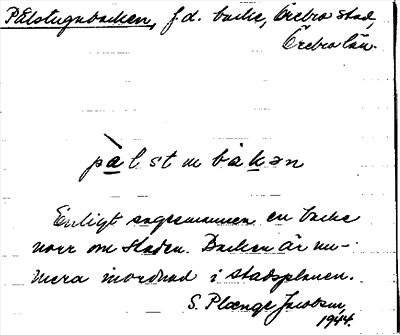 Pålstugubacken, f.d. backe, Örebro stad,
Örebro län.
pàlstubàkən
Enligt sagesmannen en backe
norr om staden. Backen är nu-
mera inordnad i stadsplanen.
S. Plænge Jacobson,
1944